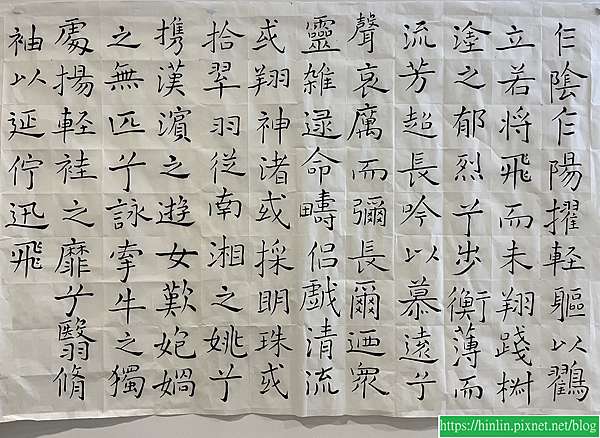 乍陰乍陽擢輕軀以鶴
立若将飛而未翔踐椒
塗之郁烈兮步衡薄而
流芳超長吟以慕遠兮
聲哀厲而彌長爾迺衆
靈雜遝命疇侶戲清流
或翔神渚或採明珠或
拾翠羽從南湘之姚兮
携漢濱之遊女歎匏媧
之無匹兮詠牽牛之獨
處揚軽袿之靡兮翳脩
袖以延佇迅飛
https://hinlin.pixnet.net/blog